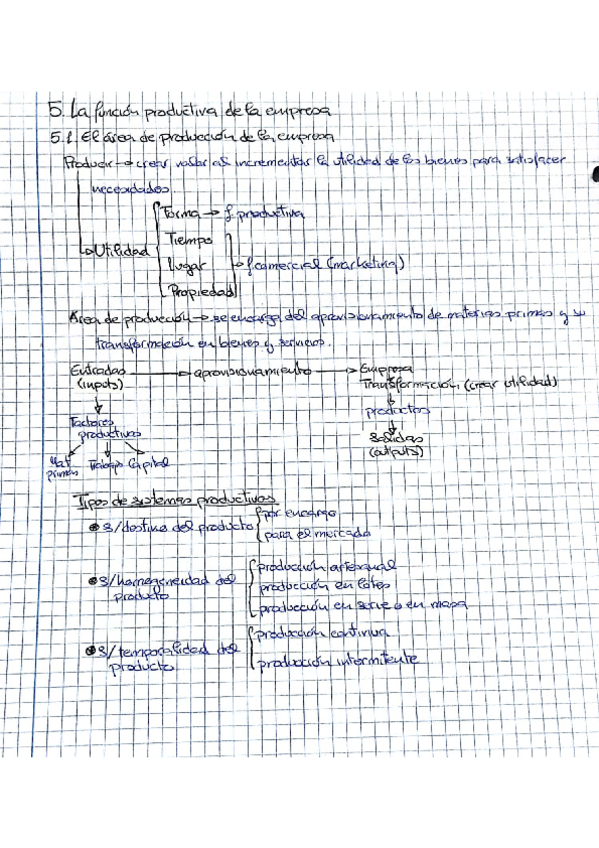 5. La función productiva de la empresa
5.1. El área de producción de la empresa
Producir → crear valor al incrementar la utilidad de los bienes para satisfacer
necesidades
Utilidad
Forma → f. productiva
Tiempo
Lugar → f. comercial (marketing)
Propiedad
Área de producción → se encarga del aprovisionamiento de materias primas y su
transformación en bienes y servicios.
Entradas → aprovisionamiento → Empresa
(inputs) Transformación (crear utilidad)
Factores productivos
productos
Salidas
(outputs)
Mat. primas Trabajo Capital
Tipos de sistemas productivos
• S/destino del producto
por encargo
para el mercado
• S/homogeneidad del
producto
producción artesanal
producción en lotes
producción en serie o en masa
• S/temporalidad del
producto
producción continua
producción intermitente